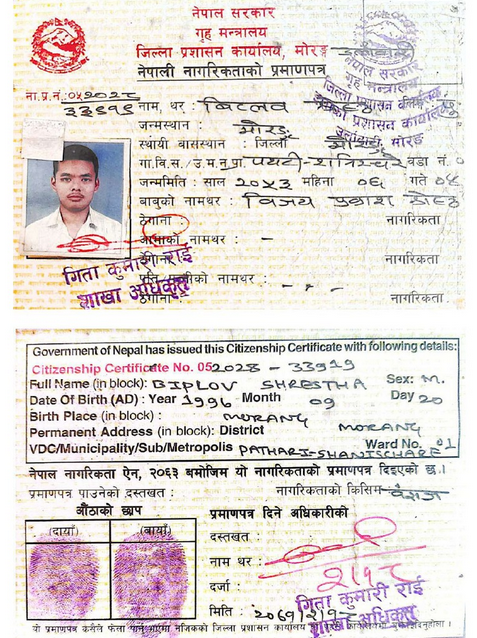 नेपाल सरकार
गृह मन्त्रालय
जिल्ला प्रशासन कार्यालय, मोरङ
नेपाली नागरिकताको प्रमाणपत्र
नेपाल सरकार
गृह मन्त्रालय
जिल्ला प्रशासन कार्यालय
मोरङ
ना.प्र.नं.:०५२०२८
नाम, थर : बिप्लव
जन्मस्थान : मोरङ
स्थायी बासस्थान : जिल्ला
गा.वि.स./उ.म.न.पा पथरी-शनिश्चरे वडा नं.
जन्ममिति : साल २०५३ महिना ०६ गते ०४
बाबुको नामथर : विजय प्रकाश श्रेष्ठ
ठेगाना : नागरिकता
आमाको नामथर : -
ठेगाना : नागरिकता
नामथर : - - -
ठेगाना : नागरिकता.
गिता कुमारी राई
शाखा अधिकृत
Government of Nepal has issued this Citizenship Certificate with following details:
Citizenship Certificate No. 052028 - 33919
Full Name (in block): BIPLOV SHRESTHA Sex: M.
Date Of Birth (AD) : Year 1996 Month 09 Day 20
Birth Place (in block) : MORANG
Permanent Address (in block): District MORANG
VDC/Municipality/Sub/Metropolis PATHARI-SHANISCHARE Ward No. 01
नेपाल नागरिकता ऐन, २०६३ बमोजिम यो नागरिकताको प्रमाणपत्र दिइएको छ.।
प्रमाणपत्र पाउनेको दस्तखत : नागरिकताको किसिम वंशज
औंठाको छाप प्रमाणपत्र दिने अधिकारीको
(दायाँ) (बायाँ) दस्तखत :
नाम थर :
दर्जा :
मिति : २०६९।२।१८
गिता कुमारी राई
शाखा अधिकृत
यो प्रमाणपत्र कसैले फेला पारे नजिकको जिल्ला प्रशासन कार्यालय